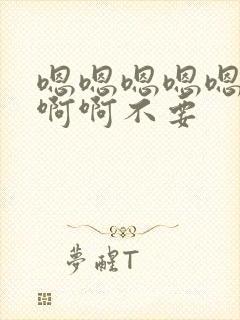 嗯嗯嗯嗯嗯
啊啊不要
夢醒T